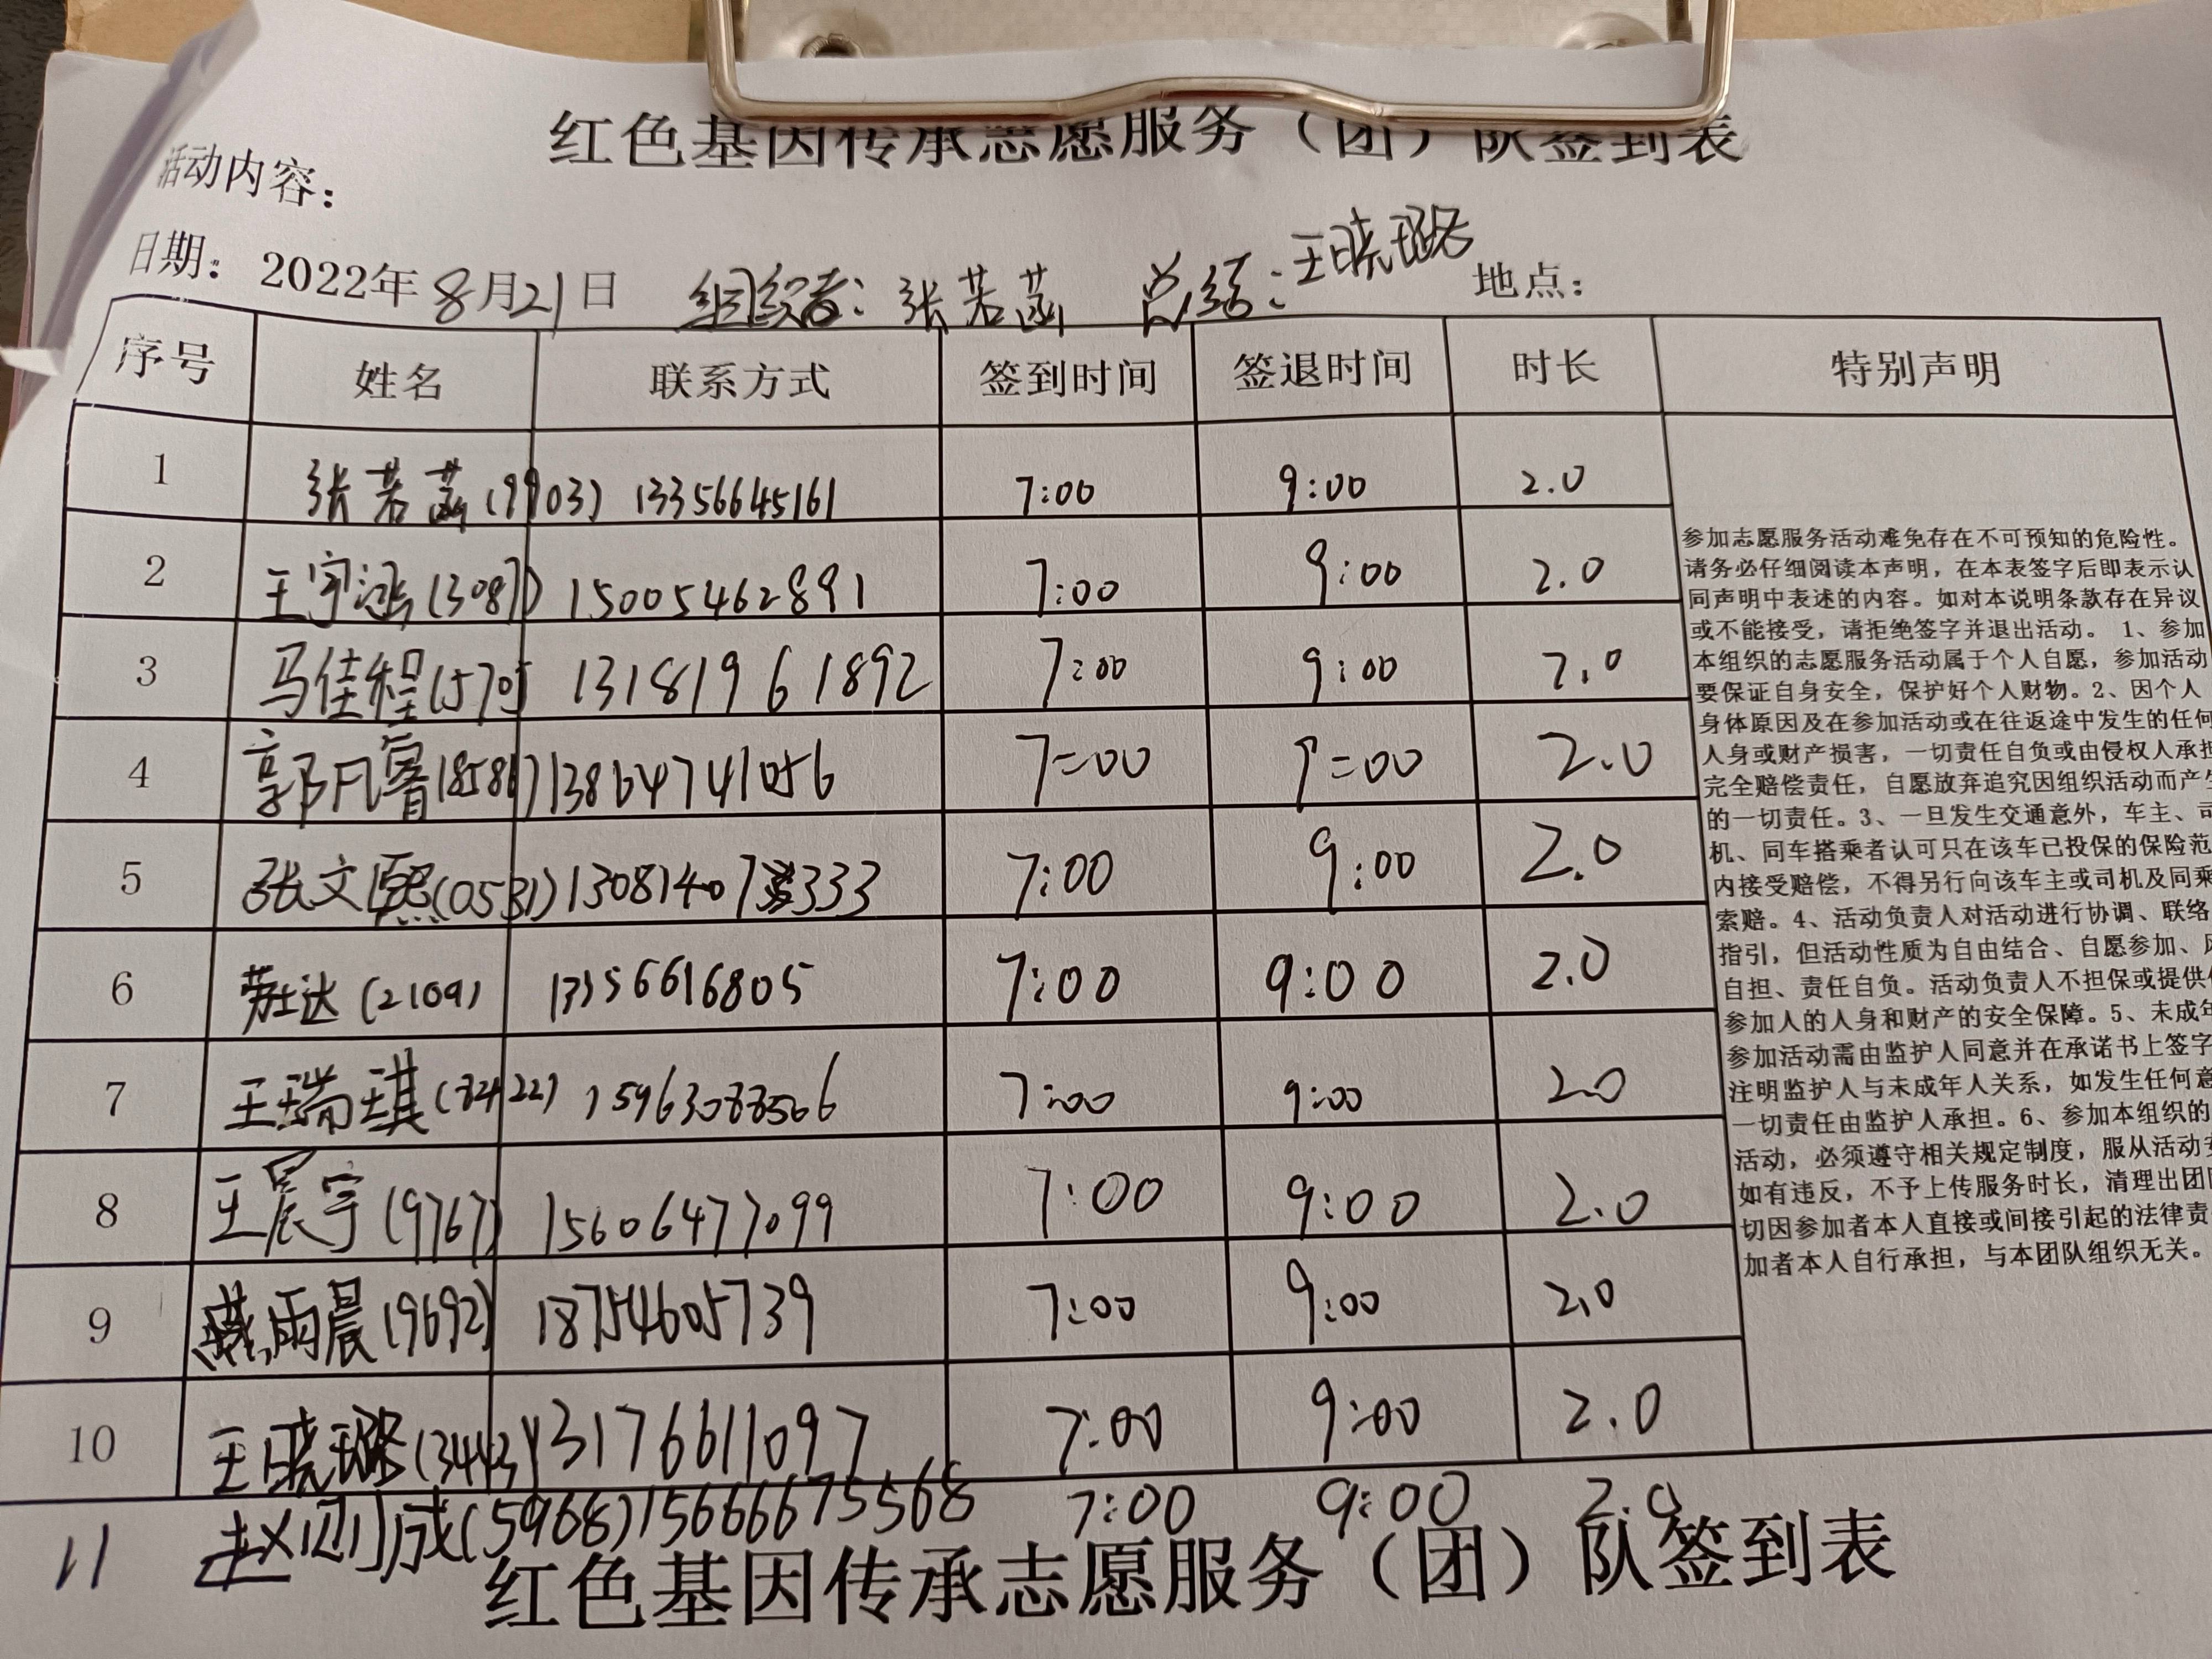 红色基因传承志愿服务（团）队签到表
活动内容：
日期：2022年8月21日 组织者：张若菡 总结：王晓璐 地点：
序号 姓名 联系方式 签到时间 签退时间 时长 特别声明
1 张若菡(9903) 13356645161 7:00 9:00 2.0
2 (3087) 15005462891 7:00 9:00 2.0
3 马佳程(5705 13181961892 7:00 9:00 2.0
4 郭凡睿(8586) 13864741056 7:00 9:00 2.0
5 张文熙(0531) 13081407333 7:00 9:00 2.0
6 (2109) 13356616805 7:00 9:00 2.0
7 王瑞琪 15963088506 7:00 9:00 2.0
8 王宸宇(9767) 15606477099 7:00 9:00 2.0
9 雨晨(9692) 18754605739 7:00 9:00 2.0
10 王晓璐(3443) 13176611097 7:00 9:00 2.0
11 赵(5968) 15666675568 7:00 9:00 2.0
参加志愿服务活动难免存在不可预知的危险性。
请务必仔细阅读本声明，在本表签字后即表示认
同声明中表述的内容。如对本说明条款存在异议
或不能接受，请拒绝签字并退出活动。 1、参加
本组织的志愿服务活动属于个人自愿，参加活动
要保证自身安全，保护好个人财物。2、因个人
身体原因及在参加活动或在往返途中发生的任何
人身或财产损害，一切责任自负或由侵权人承担
完全赔偿责任，自愿放弃追究因组织活动而产生
的一切责任。3、一旦发生交通意外，车主、司
机、同车搭乘者认可只在该车已投保的保险范
内接受赔偿，不得另行向该车主或司机及同乘
索赔。4、活动负责人对活动进行协调、联络
指引，但活动性质为自由结合、自愿参加、风
自担、责任自负。活动负责人不担保或提供
参加人的人身和财产的安全保障。5、未成年
参加活动需由监护人同意并在承诺书上签字
注明监护人与未成年人关系，如发生任何意
一切责任由监护人承担。6、参加本组织的
活动，必须遵守相关规定制度，服从活动安
如有违反，不予上传服务时长，清理出团队
切因参加者本人直接或间接引起的法律责
加者本人自行承担，与本团队组织无关。
红色基因传承志愿服务（团）队签到表